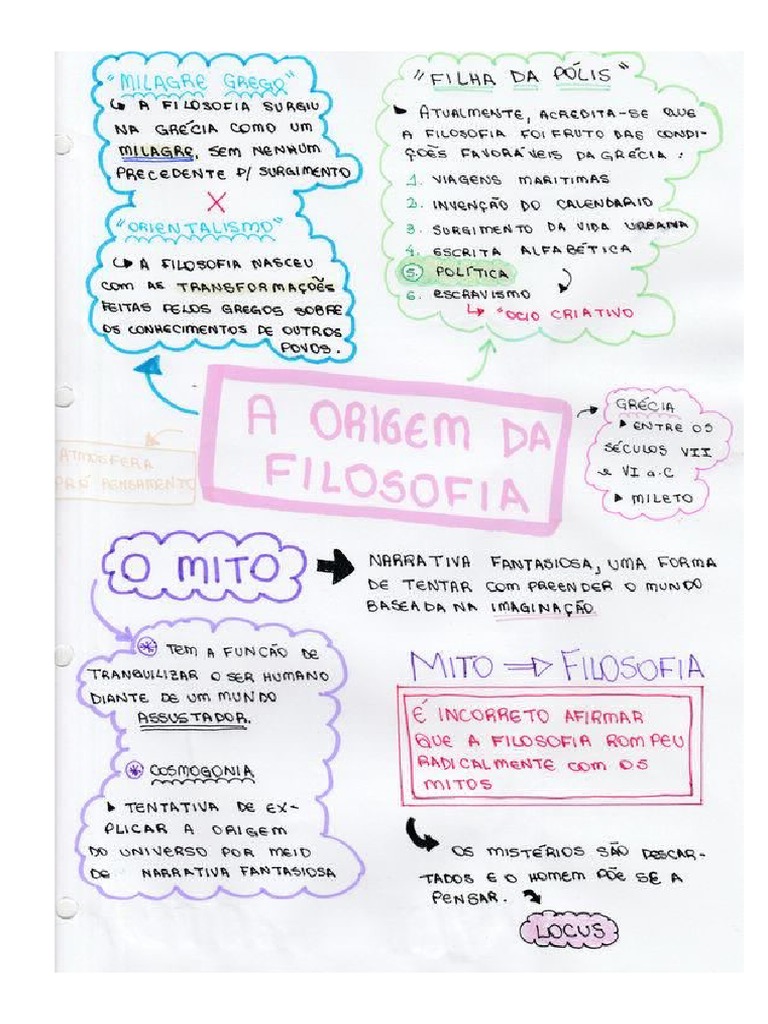 "MILAGRE GREGO"
↳ A FILOSOFIA SURGIU
NA GRÉCIA COMO UM
MILAGRE, SEM NENHUM
PRECEDENTE P/ SURGIMENTO
X
"ORIENTALISMO"
↳ A FILOSOFIA NASCEU
COM AS TRANSFORMAÇÕES
FEITAS PELOS GREGOS SOBRE
OS CONHECIMENTOS DE OUTROS
POVOS.
"FILHA DA PÓLIS"
▸ ATUALMENTE, ACREDITA-SE QUE
A FILOSOFIA FOI FRUTO DAS CONDI-
ÇÕES FAVORÁVEIS DA GRÉCIA:
1. VIAGENS MARÍTIMAS
2. INVENÇÃO DO CALENDÁRIO
3. SURGIMENTO DA VIDA URBANA
4. ESCRITA ALFABÉTICA
5. POLÍTICA
6. ESCRAVISMO
↳ "ÓCIO CRIATIVO
A ORIGEM DA
FILOSOFIA
GRÉCIA
▸ ENTRE OS
SÉCULOS VII
e VI a.C
▸ MILETO
ATMOSFERA
PRÉ PENSAMENTO
O MITO
NARRATIVA FANTASIOSA, UMA FORMA
DE TENTAR COMPREENDER O MUNDO
BASEADA NA IMAGINAÇÃO.
* TEM A FUNÇÃO DE
TRANQUILIZAR O SER HUMANO
DIANTE DE UM MUNDO
ASSUSTADOR.
* COSMOGONIA
▸ TENTATIVA DE EX-
PLICAR A ORIGEM
DO UNIVERSO POR MEIO
DE NARRATIVA FANTASIOSA
MITO ⇒ FILOSOFIA
É INCORRETO AFIRMAR
QUE A FILOSOFIA ROMPEU
RADICALMENTE COM OS
MITOS
OS MISTÉRIOS SÃO DESCAR-
TADOS E O HOMEM PÕE SE A
PENSAR.
LOCUS